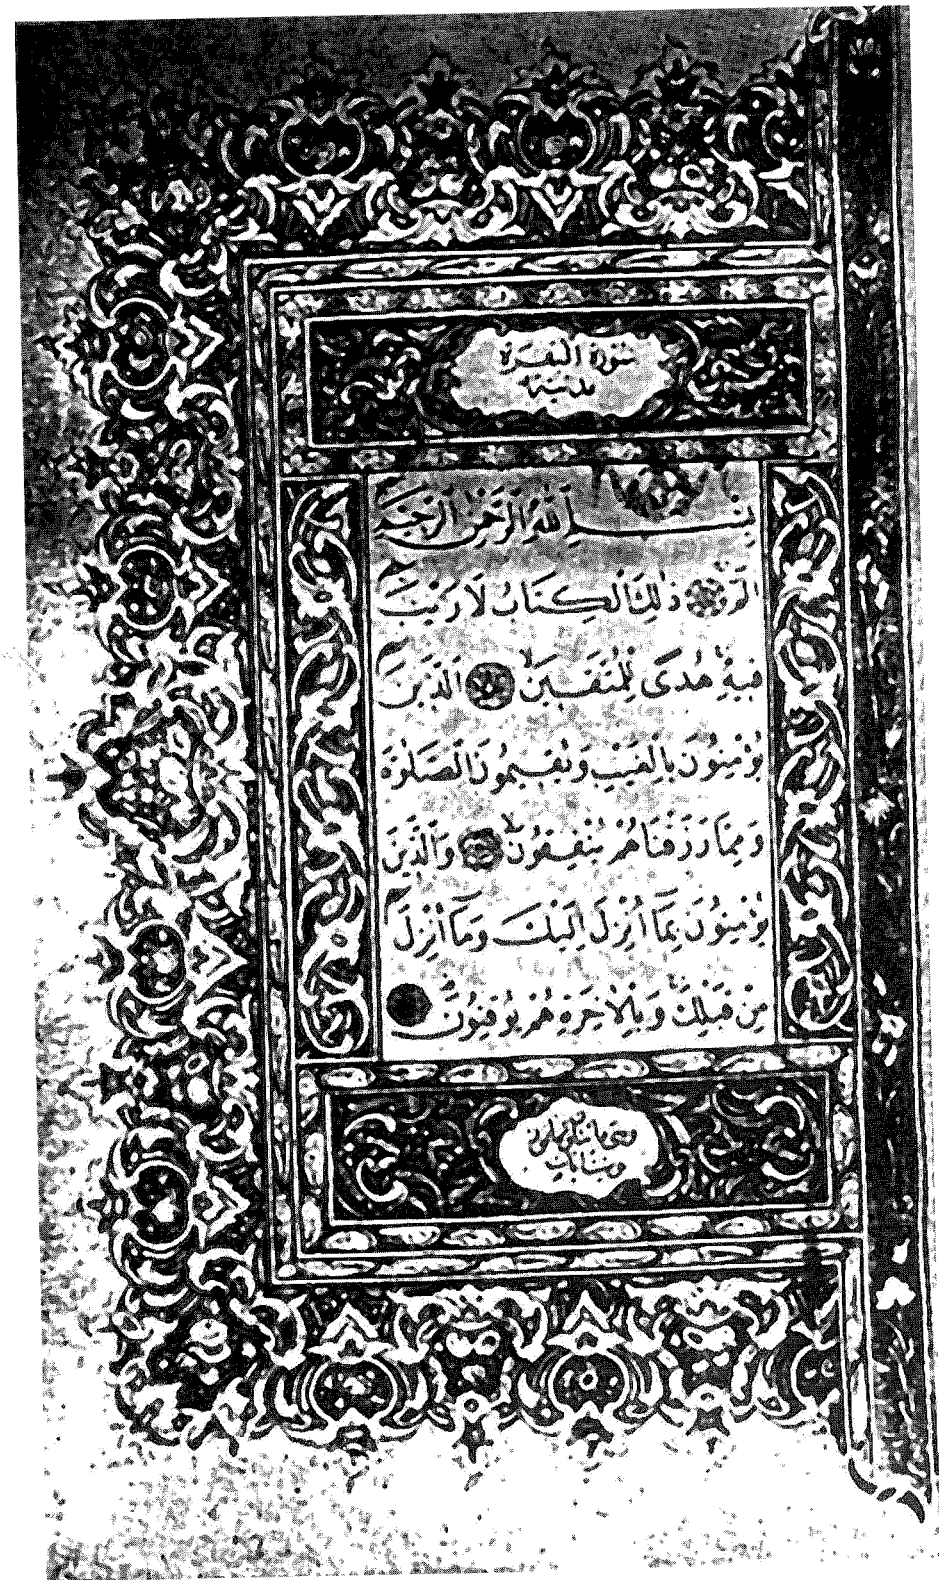 سُورَةُ الْبَقَرَةِ
مَدَنِيَّة
بِسْمِ اللّٰهِ الرَّحْمٰنِ الرَّحِيمِ
الٓمٓ ذٰلِكَ الْكِتَابُ لَا رَيْبَ
فِيهِ هُدًى لِلْمُتَّقِينَ الَّذِينَ
يُؤْمِنُونَ بِالْغَيْبِ وَيُقِيمُونَ الصَّلٰوةَ
وَمِمَّا رَزَقْنَاهُمْ يُنْفِقُونَ وَالَّذِينَ
يُؤْمِنُونَ بِمَٓا اُنْزِلَ اِلَيْكَ وَمَٓا اُنْزِلَ
مِنْ قَبْلِكَ وَبِالْاٰخِرَةِ هُمْ يُوقِنُونَ